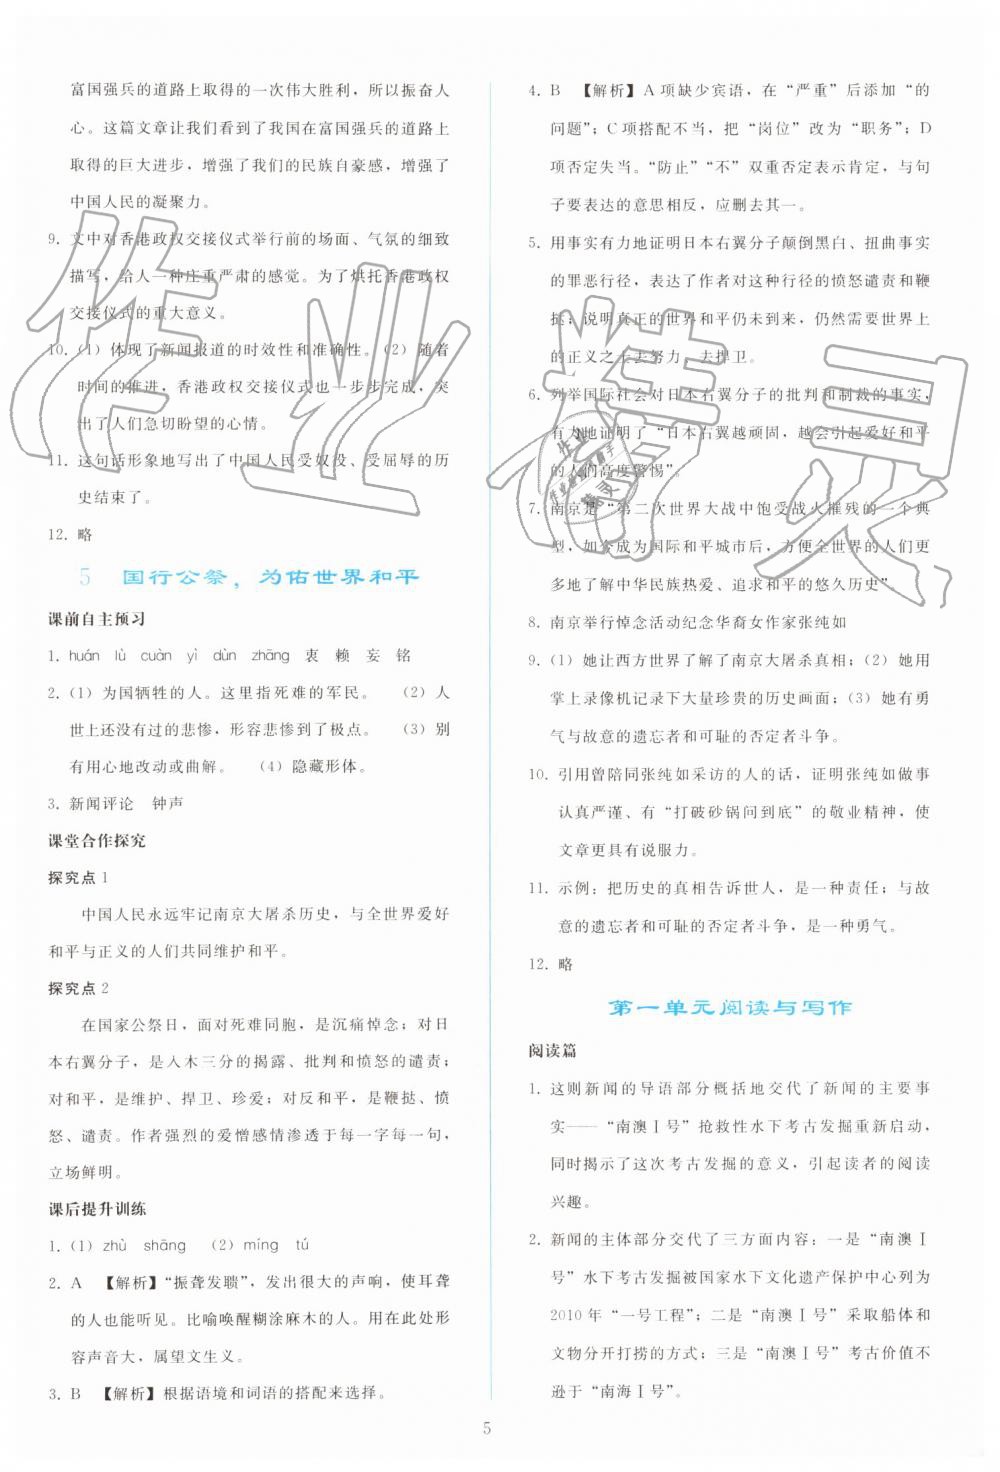 富国强兵的道路上取得的一次伟大胜利，所以振奋人
心。这篇文章让我们看到了我国在富国强兵的道路上
取得的巨大进步，增强了我们的民族自豪感，增强了
中国人民的凝聚力。
9. 文中对香港政权交接仪式举行前的场面、气氛的细致
描写，给人一种庄重严肃的感觉。为了烘托香港政权
交接仪式的重大意义。
10. (1) 体现了新闻报道的时效性和准确性。(2) 随着
时间的推进，香港政权交接仪式也一步步完成，突
出了人们急切盼望的心情。
11. 这句话形象地写出了中国人民受奴役、受屈辱的历
史结束了。
12. 略
5 国行公祭，为佑世界和平
课前自主预习
1. huán lù cuàn yì dùn zhāng 衷 赖 妄 铭
2. (1) 为国牺牲的人。这里指死难的军民。 (2) 人
世上还没有过的悲惨，形容悲惨到了极点。 (3) 别
有用心地改动或曲解。 (4) 隐藏形体。
3. 新闻评论 钟声
课堂合作探究
探究点 1
中国人民永远牢记南京大屠杀历史，与全世界爱好
和平与正义的人们共同维护和平。
探究点 2
在国家公祭日，面对死难同胞，是沉痛悼念；对日
本右翼分子，是入木三分的揭露、批判和愤怒的谴责；
对和平，是维护、捍卫、珍爱；对反和平，是鞭挞、愤
怒、谴责。作者强烈的爱憎感情渗透于每一字每一句，
立场鲜明。
课后提升训练
1. (1) zhù shāng (2) míng tú
2. A 【解析】“振聋发聩”，发出很大的声响，使耳聋
的人也能听见。比喻唤醒糊涂麻木的人。用在此处形
容声音大，属望文生义。
3. B 【解析】根据语境和词语的搭配来选择。
4. B 【解析】A 项缺少宾语，在“严重”后添加“的
问题”；C 项搭配不当，把“岗位”改为“职务”；D
项否定失当。“防止”“不”双重否定表示肯定，与句
子要表达的意思相反，应删去其一。
5. 用事实有力地证明日本右翼分子颠倒黑白、扭曲事实
的罪恶行径，表达了作者对这种行径的愤怒谴责和鞭
挞；说明真正的世界和平仍未到来，仍然需要世界上
的正义之士去努力、去捍卫。
6. 列举国际社会对日本右翼分子的批判和制裁的事实，
有力地证明了“日本右翼越顽固，越会引起爱好和平
的人们高度警惕”。
7. 南京是“第二次世界大战中饱受战火摧残的一个典
型，如今成为国际和平城市后，方便全世界的人们更
多地了解中华民族热爱、追求和平的悠久历史”。
8. 南京举行悼念活动纪念华裔女作家张纯如
9. (1) 她让西方世界了解了南京大屠杀真相；(2) 她用
掌上录像机记录下大量珍贵的历史画面；(3) 她有勇
气与故意的遗忘者和可耻的否定者斗争。
10. 引用曾陪同张纯如采访的人的话，证明张纯如做事
认真严谨、有“打破砂锅问到底”的敬业精神，使
文章更具有说服力。
11. 示例：把历史的真相告诉世人，是一种责任；与故
意的遗忘者和可耻的否定者斗争，是一种勇气。
12. 略
第一单元阅读与写作
阅读篇
1. 这则新闻的导语部分概括地交代了新闻的主要事
实——“南澳Ⅰ号”抢救性水下考古发掘重新启动，
同时揭示了这次考古发掘的意义，引起读者的阅读
兴趣。
2. 新闻的主体部分交代了三方面内容：一是“南澳Ⅰ
号”水下考古发掘被国家水下文化遗产保护中心列为
2010 年“一号工程”；二是“南澳Ⅰ号”采取船体和
文物分开打捞的方式；三是“南澳Ⅰ号”考古价值不
逊于“南海Ⅰ号”。
5
作业精灵